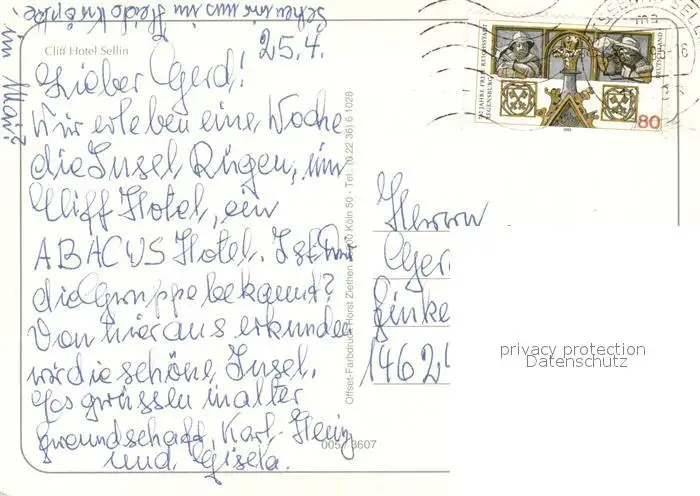 Cliff Hotel Sellin
25.4.
Lieber Gerd!
Wir erleben eine Woche
die Insel Rügen, im
Cliff Hotel, ein
ABACUS Hotel. Ist Dir
die Gruppe bekannt?
Von hier aus erkunden
wir die schöne Insel.
Es grüssen in alter
Freundschaft, Karl-Heinz
und Gisela.
Sehen wir uns im
im Mai?
Offset-Farbdruck Horst Ziethen Köln 50 · Tel.: (0 22 36) 6 10 28
005 3607
750 JAHRE FREIE REICHSSTADT
REGENSBURG
DEUTSCHLAND
1995
80
Herrn
Ger
Finke
1462
privacy protection
Datenschutz